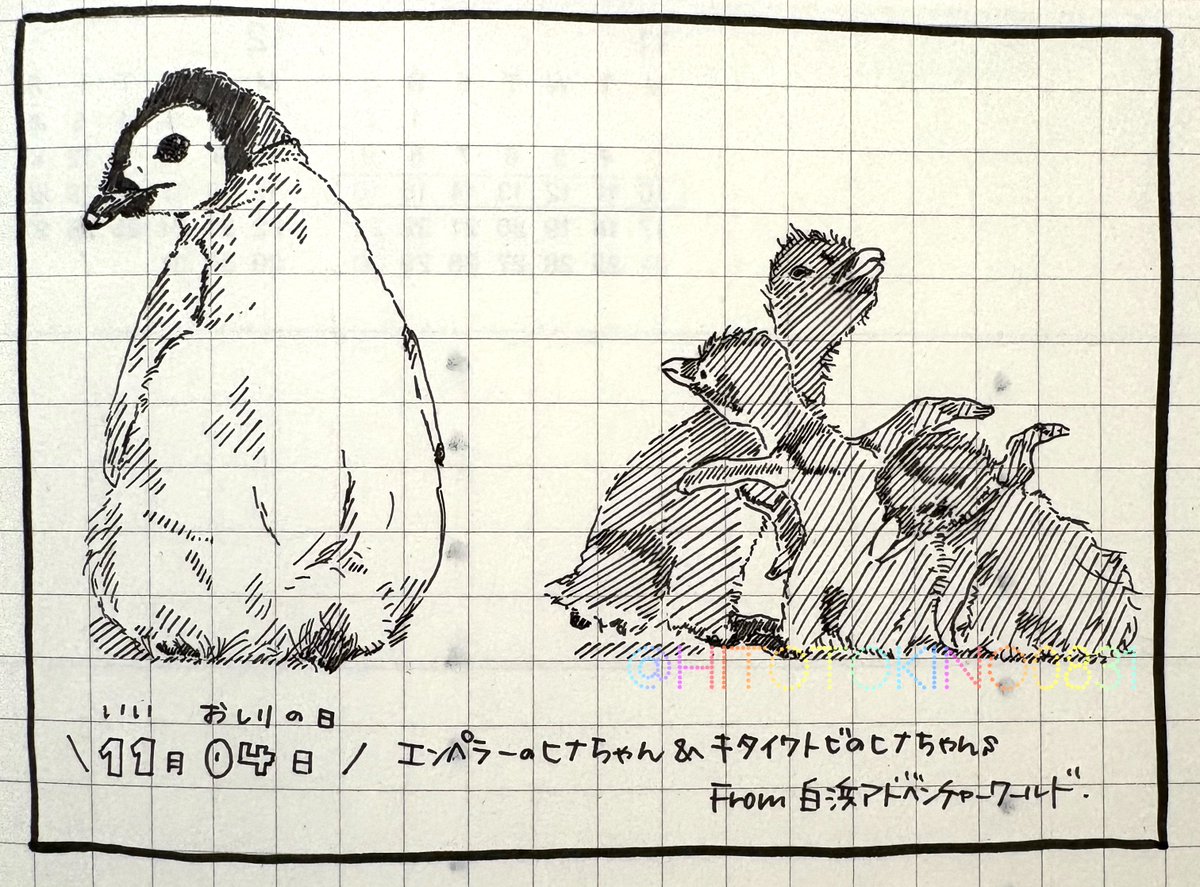 @HITOTOKINO0831
いいい おしりの日
\ 11月04日 / エンペラーのヒナちゃん & キタイワトビのヒナちゃんs
From 白浜アドベンチャーワールド.